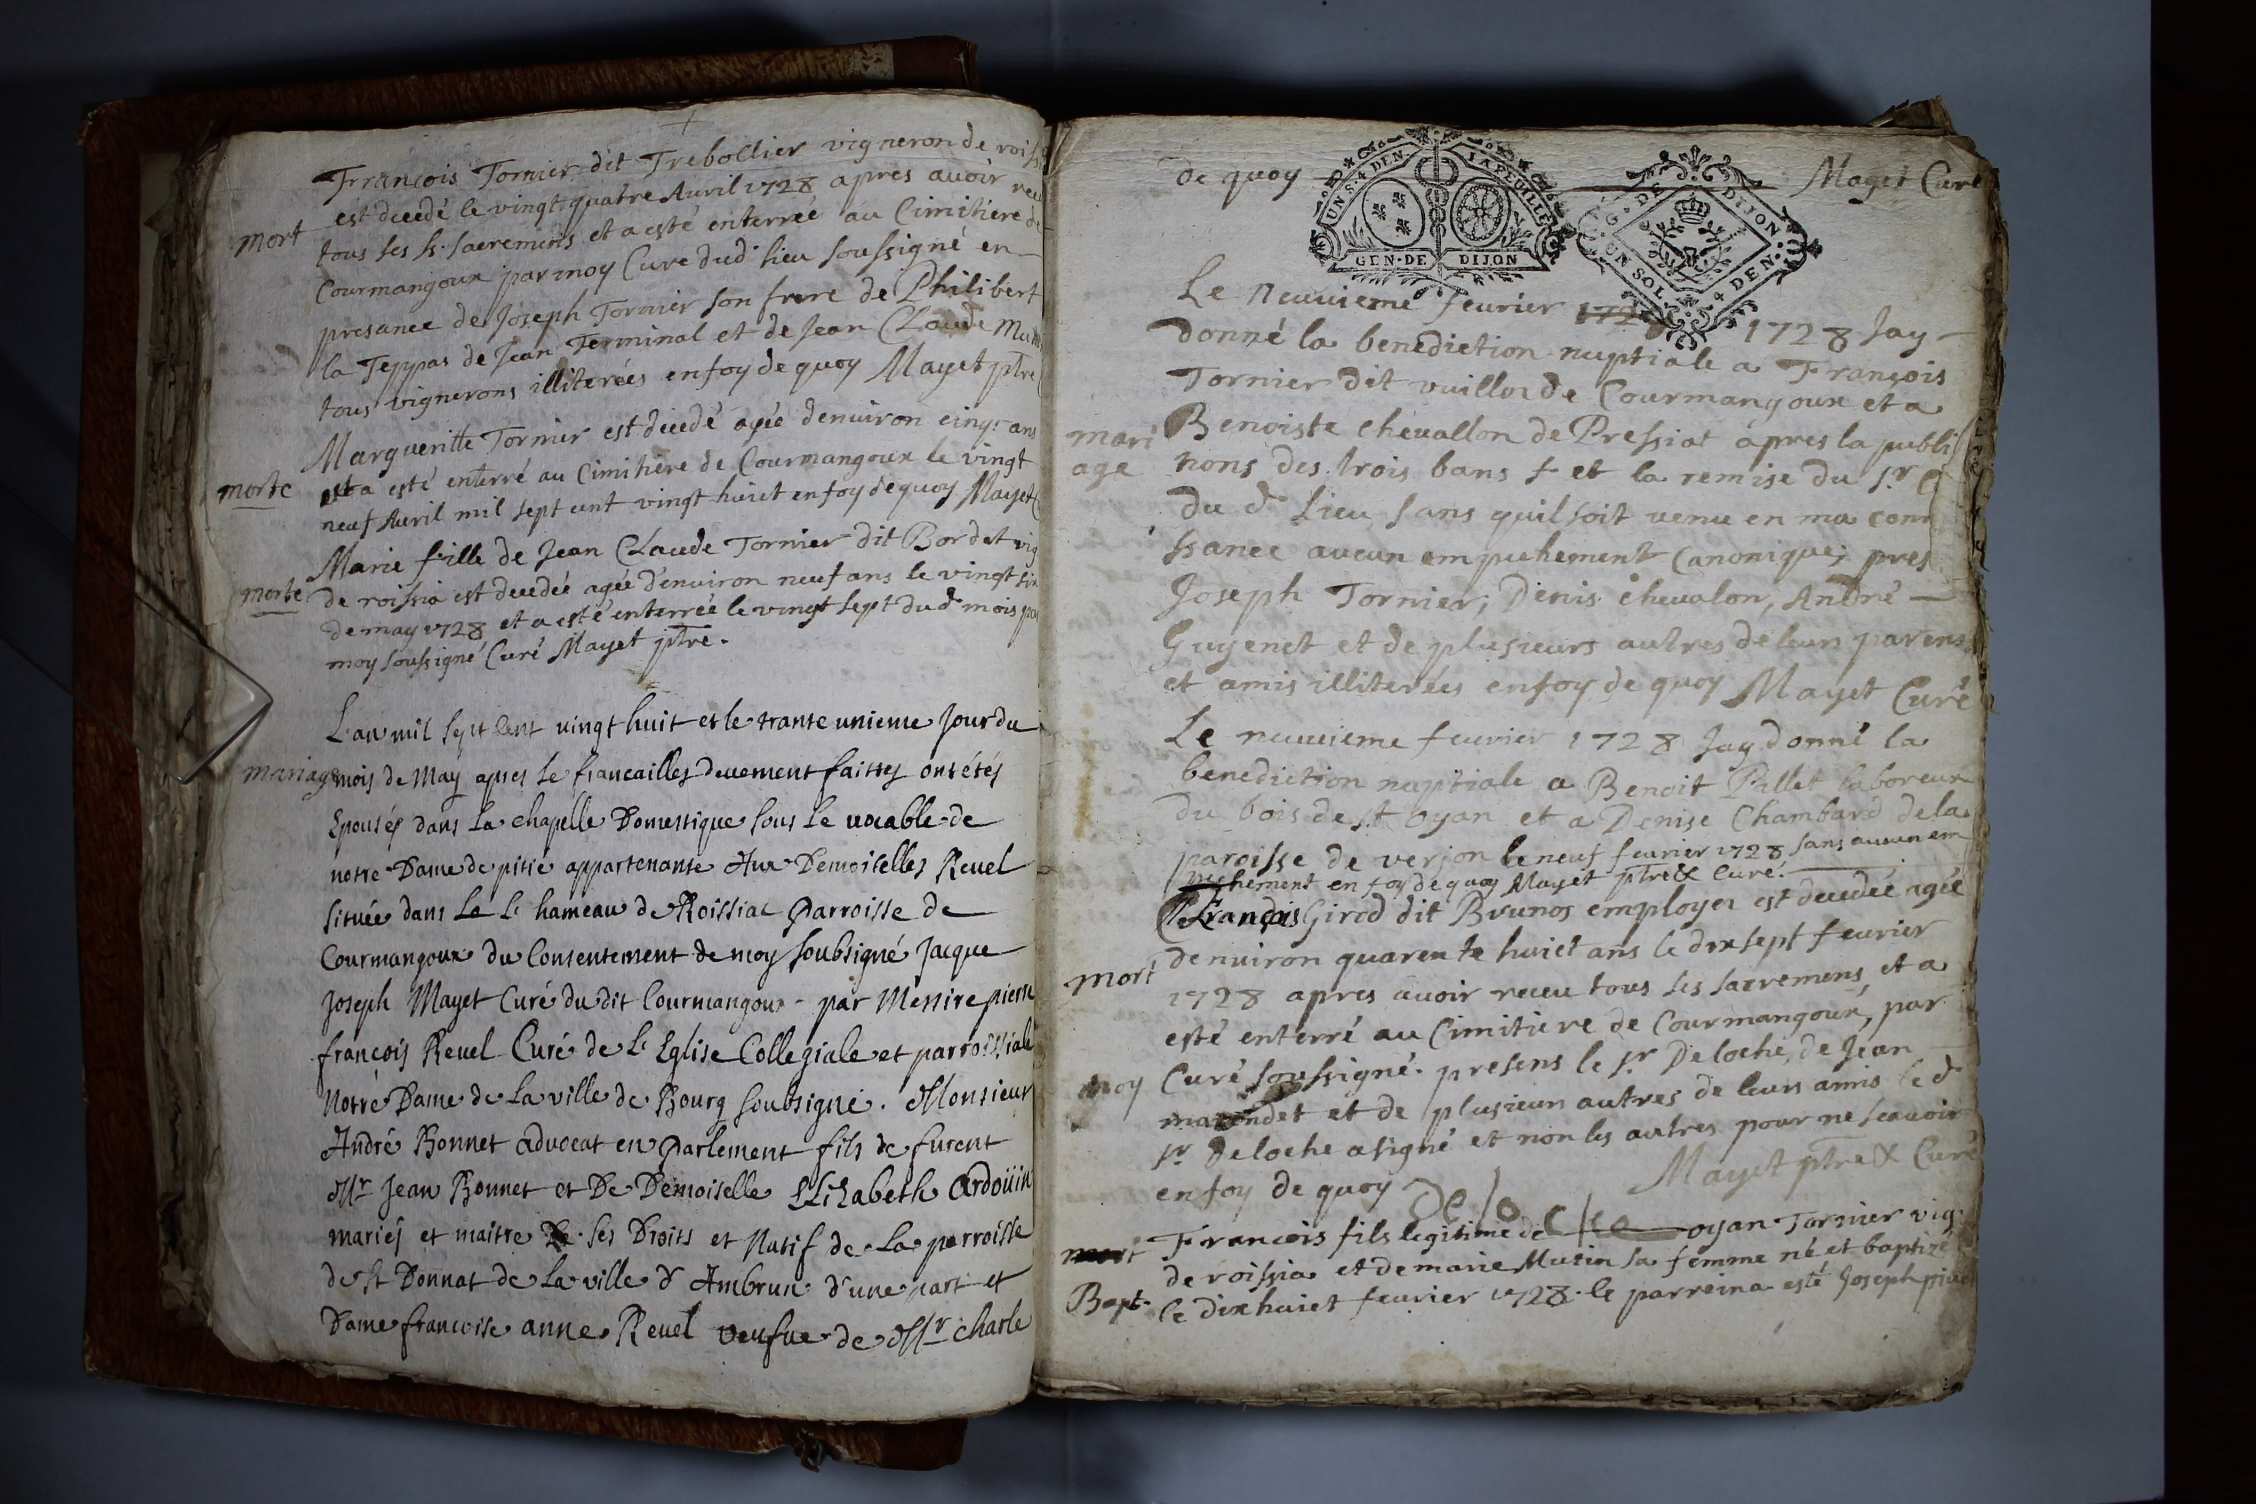 François Tornier dit Trebollier vigneron de
est decedé le vingt quatre Avril 1728 apres avoir
mort
tous ses ss. sacremens et a esté enterrée au Cimitiere de
Courmangoux par moy Curé dud. lieu soussigné en
presance de Joseph Tornier son frere de Philibert
la Teppas de Jean Terminal et de Jean Claude
tous vignerons illiterées en foy de quoy Mayet ptre
Margueritte Tornier est decedé agée denviron cinq. ans
morte
et a esté enterré au Cimitiere de Courmangoux le vingt
neuf Avril mil sept cent vingt huict en foy de quoy Mayet
Marie fille de Jean Claude Tornier dit Bordet vig
morte
de roissia est decedée agée d'environ neuf ans le vingt six
de may 1728 et a esté enterrée le vingt sept du d. mois par
moy soussigné Curé Mayet ptre.
L'an mil sept cent vingt huit et le trante unieme jour du
mariage
mois de May apres le fiancailles deuement faittes ont étés
Epousés dans la chapelle Domestique sous le vocable de
notre Dame de pitie appartenante Aux Demoiselles Revel
située dans Le hameau de Roissiac Parroisse de
Courmangoux du Consentement de moy soubsigné Jacque
Joseph Mayet Curé du dit Courmangoux par Messire pierre
françois Revel Curé de L Eglise Collegiale et parroissiale
Notre Dame de La ville de Bourg soubsigné. Monsieur
André Bonnet advocat en Parlement fils de furent
Mr Jean Bonnet et De Demoiselle Elizabeth Ardoüin
mariés et maitre De ses Droits et Natif de La parroisse
de St Donnat de La ville d'Ambrun d'une part et
Dame francoise anne Revel veufve de Mr charle
de quoy Mayet Curé
UN S. 4 DEN. LA FEUILLE
GEN. DE DIJON
G. DE DIJON
UN SOL 4 DEN.
Le neuvieme fevrier 1728 Jay
donné la benediction nuptiale a François
Tornier dit vuillot de Courmangoux et a
mari
age
Benoiste chevallon de Pressiat apres la publi
tions des trois bans et la remise du sr
du d. Lieu sans quil soit venu en ma conn
ssance aucun empechement Canonique; pres
Joseph Tornier; Denis chevalon, André
Guyenet et de plusieurs autres de leurs parens
et amis illiterées en foy de quoy Mayet Curé
Le neuvieme fevrier 1728 Jay donné la
benediction nuptiale a Benoit Pillet laboreur
du bois de st oyan et a Denise Chambard de la
paroisse de verjon le neuf fevrier 1728 sans aucun em
pechement en foy de quoy Mayet ptre & Curé.
François Girod dit Brunos employer est decedée agée
mort
denviron quarente huict ans le dix sept fevrier
1728 apres avoir receu tous ses sacremens, et a
esté enterré au Cimitiere de Courmangoux, par
moy
Curé soussigné. presens le sr Deloche, de Jean
et de plusieurs autres de leurs amis le d.
sr Deloche a signé et non les autres pour ne scavoir
en foy de quoy Mayet ptre & Curé
Deloche
Francois fils legitime de oyan Tornier vig.
mort
de roissia et de marie Mutin sa femme né et baptizé
Bapt.
le dix huict fevrier 1728. le parrein a esté Joseph